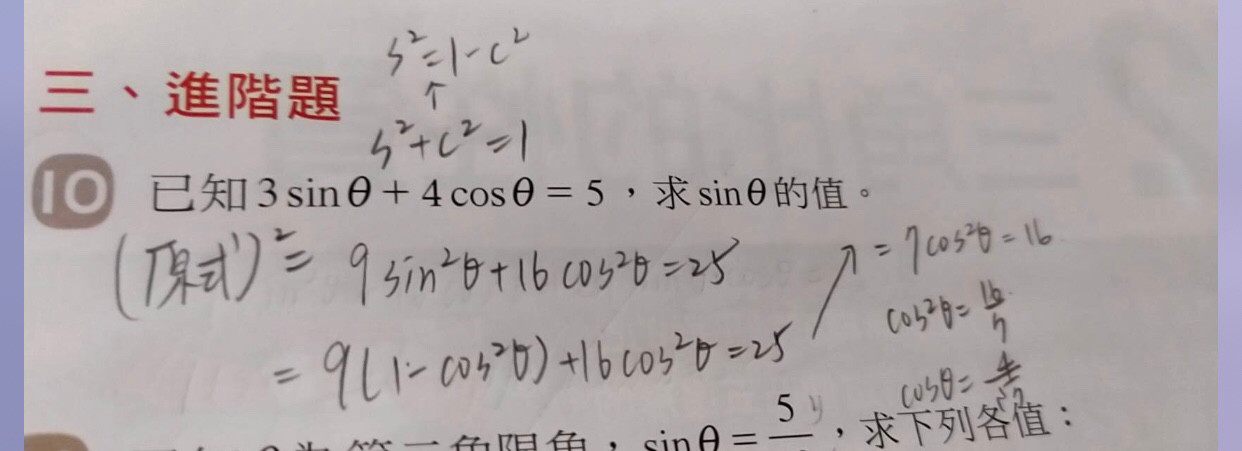 s²=1-c²
↑
三、進階題
s²+c²=1
10 已知3 sinθ + 4 cosθ = 5，求 sinθ 的值。
(原式)² = 9 sin²θ+16 cos²θ=25
= 9(1-cos²θ)+16cos²θ=25
↗ = 7cos²θ=16
cos²θ=16/7
cosθ=4/√7
sinθ = 5，求下列各值：